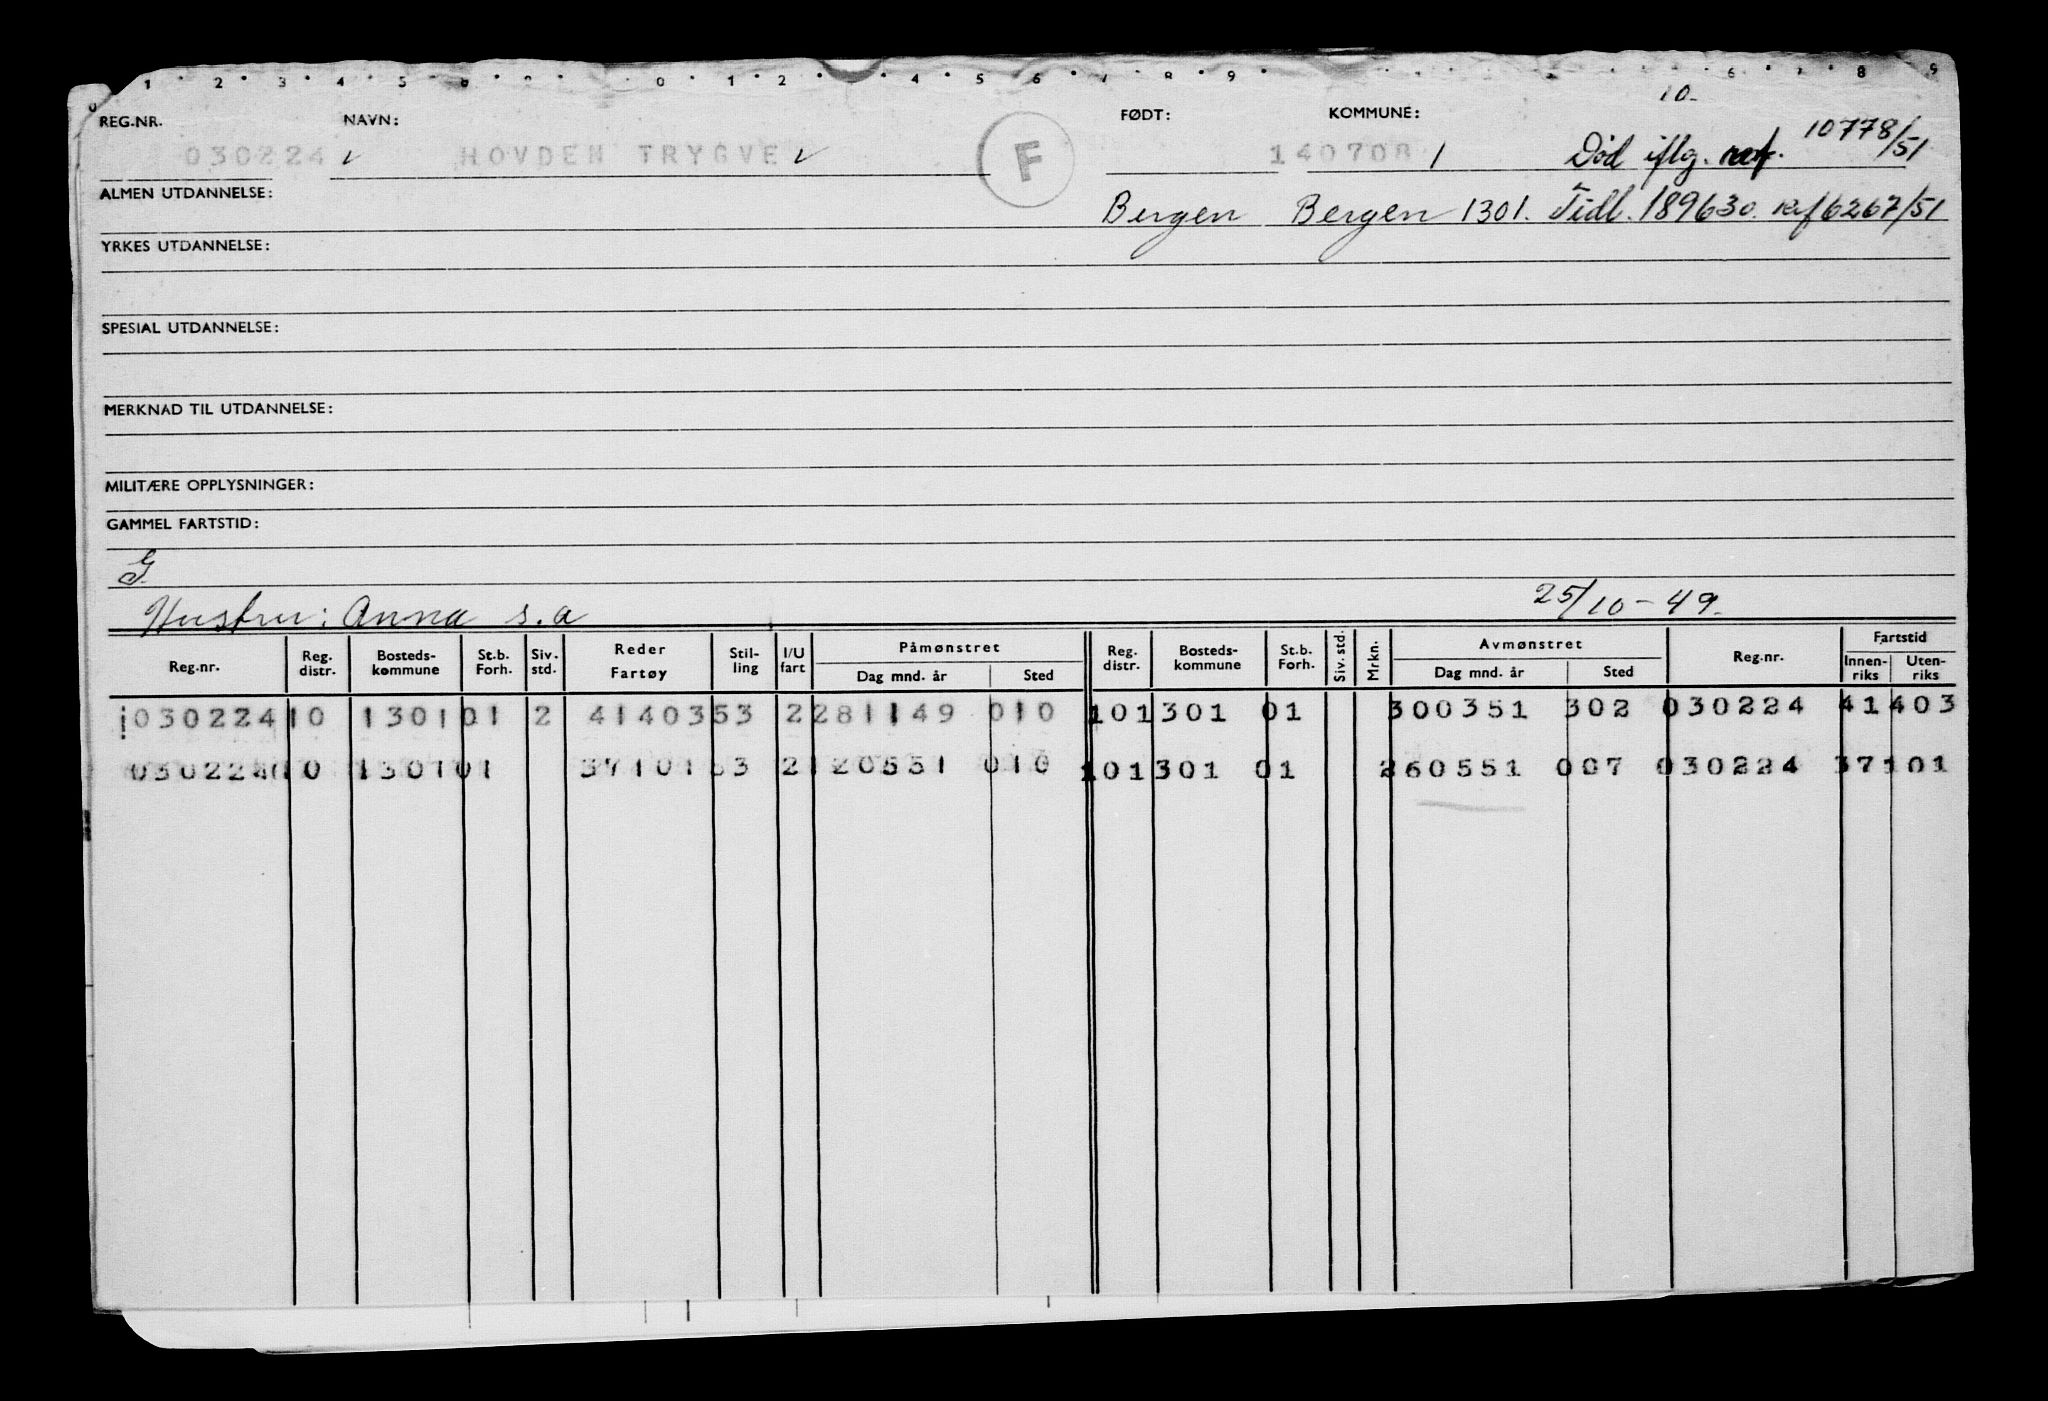 1 2 3 4 5 6 0 1 2 4 5 6 7 8 9 6 7 8 9
0
10.
REG.NR. NAVN: FØDT: KOMMUNE: 10778/51
030224 v HOVDEN TRYGVE v F 140708 1 Død iflg. ref.
ALMEN UTDANNELSE: Bergen Bergen 1301. Tidl. 189630. ref 6267/51
YRKES UTDANNELSE:
SPESIAL UTDANNELSE:
MERKNAD TIL UTDANNELSE:
MILITÆRE OPPLYSNINGER:
GAMMEL FARTSTID:
G
Hustru: Anna s.a 25/10-49.
Reg.nr. Reg. distr. Bosteds-kommune St.b. Forh. Siv. std. Reder Fartøy Stil-ling I/U fart Påmønstret Dag mnd. år Sted Reg. distr. Bosteds-kommune St.b. Forh. Siv. std. Mrkn. Avmønstret Dag mnd. år Sted Reg.nr. Fartstid Innen-riks Uten-riks
030224 10 1301 01 2 41403 53 2 281149 010 10 1301 01 300351 302 030224 41403
030224 10 1301 01 37101 53 2 120551 010 10 1301 01 260551 007 030224 37101